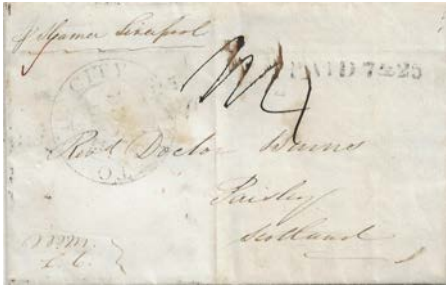 Steamer Liverpool
CITY
PAID 7 & 25
Revd Doctor Burns
Paisley
Scotland